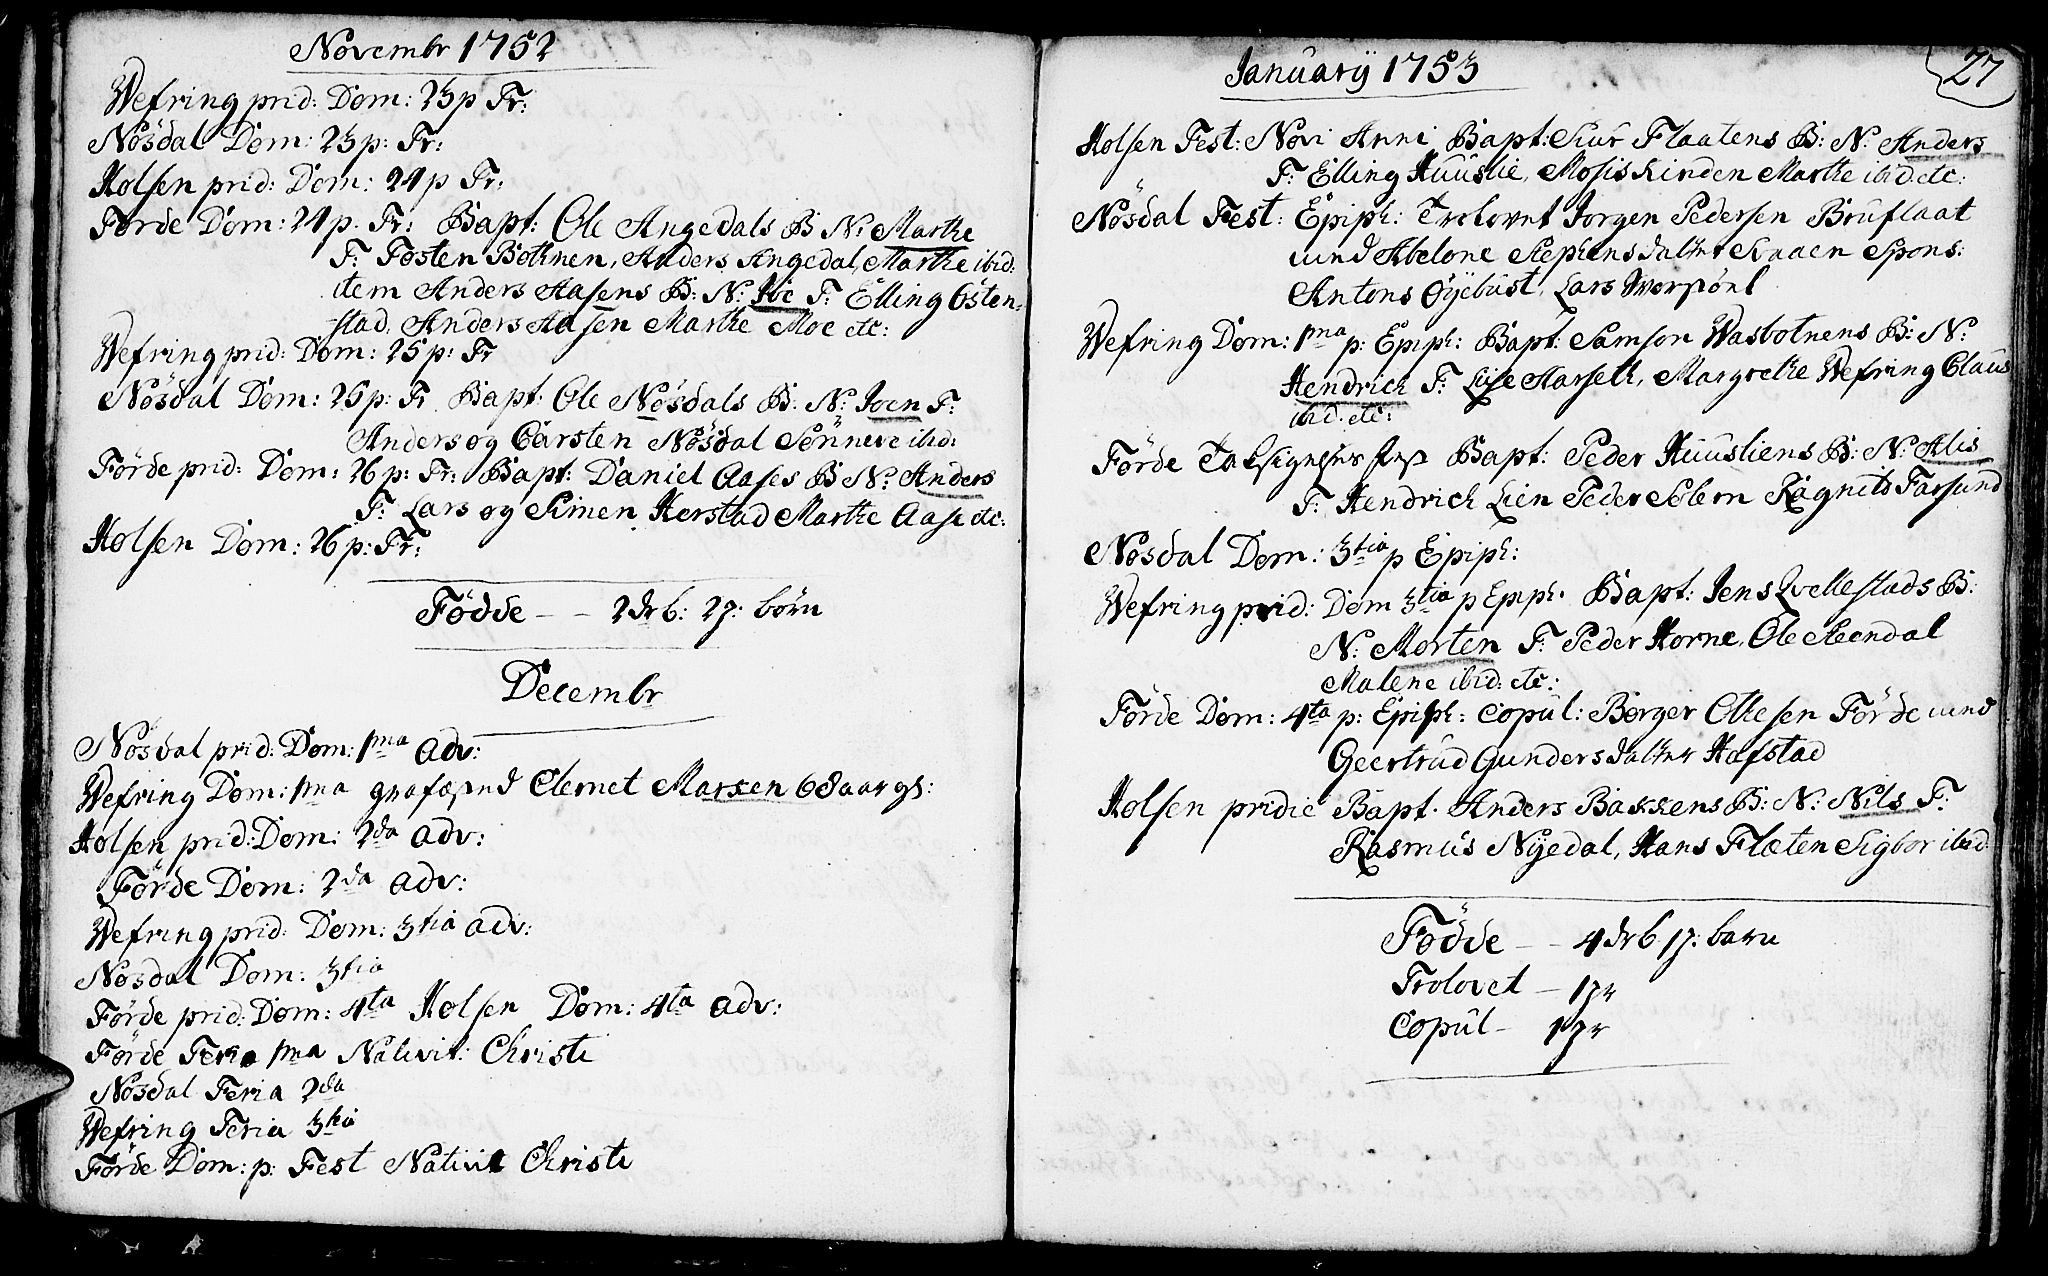 Novembr 1752
Wefring prid: Dom: 23 p Tr:
Nøsdal Dom: 23 p: Tr:
Holsen prid: Dom: 24 p Tr:
Førde Dom: 24 p. Tr: Bapt: Ole Angedals B N: Marthe
F: Tosten Bothnen, Anders Angedal, Marthe ibid:
item Anders Aasens B: N: F: Elling Østen-
stad, Anders Aasen Marthe Moe etc:
Wefring prid: Dom: 25 p: Tr
Nøsdal Dom: 25 p: Tr Bapt: Ole Nøsdals B: N: Joen F:
Anders og Carsten Nøsdal Sønneve ibid:
Førde prid: Dom: 26 p: Tr: Bapt: Daniel Aases B N: Anders
F: Lars og Simen Herstad Marthe Aase etc:
Holsen Dom: 26 p: Tr:
Födde - - 2 drb: 2 p: börn
Decembr
Nøsdal prid: Dom: 1ma adv:
Wefring Dom: 1ma Clemet 68 aar gl:
Holsen prid: Dom: 2da adv:
Førde Dom: 2da adv:
Wefring prid: Dom: 3tia adv:
Nøsdal Dom: 3tia
Førde prid: Dom: 4ta Holsen Dom: 4ta adv:
Førde Feria 1ma Nativit: Christi
Nøsdal Feria 2da
Wefring Feria 3tia
Førde Dom: p: Fest Nativit Christi
27
Januarij 1753
Holsen Fest: Novi Anni Bapt: Siur Flaatens B: N: Anders
F: Elling Huuslie, Mosis Linden Marthe ibid: etc:
Nøsdal Fest: Epiph: Trolovet Jorgen Pedersen Bruflaat
und Abelone Stephensdatter Spons:
Antons Øyebust, Lars
Wefring Dom: 1ma p: Epiph: Bapt: Samson Wasbotnens B: N:
Hendrich F: Lise Harseth, Margrethe Wefring Claus
ibid: etc:
Førde Bapt: Peder Huusliens B: N: Alis
F: Hendrich Lien Peder Solem Ragnild Farsund
Nøsdal Dom: 3tia p Epiph:
Wefring prid: Dom 3tia p Epiph: Bapt: Jens Qvellestads B:
N: Morten F: Peder Horne, Ole Steendal
Malene ibid: etc:
Førde Dom: 4ta p: Epiph: Copul: Børger Othesen Førde und
Geertrud Gundersdatter Hafstad
Holsen pridie Bapt: Anders Bakkens B: N: Nils F:
Rasmus Nyedal, Hans Flæten Sigbor ibid
Födde - - 4 drb 1 p: barn
Trolovet - 1 pr
Copul - 1 pr